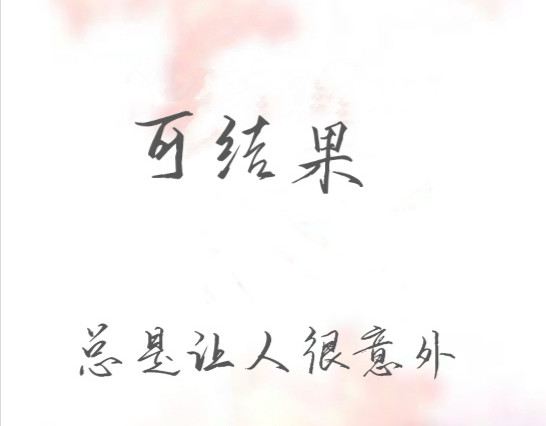 可结果
总是让人很意外